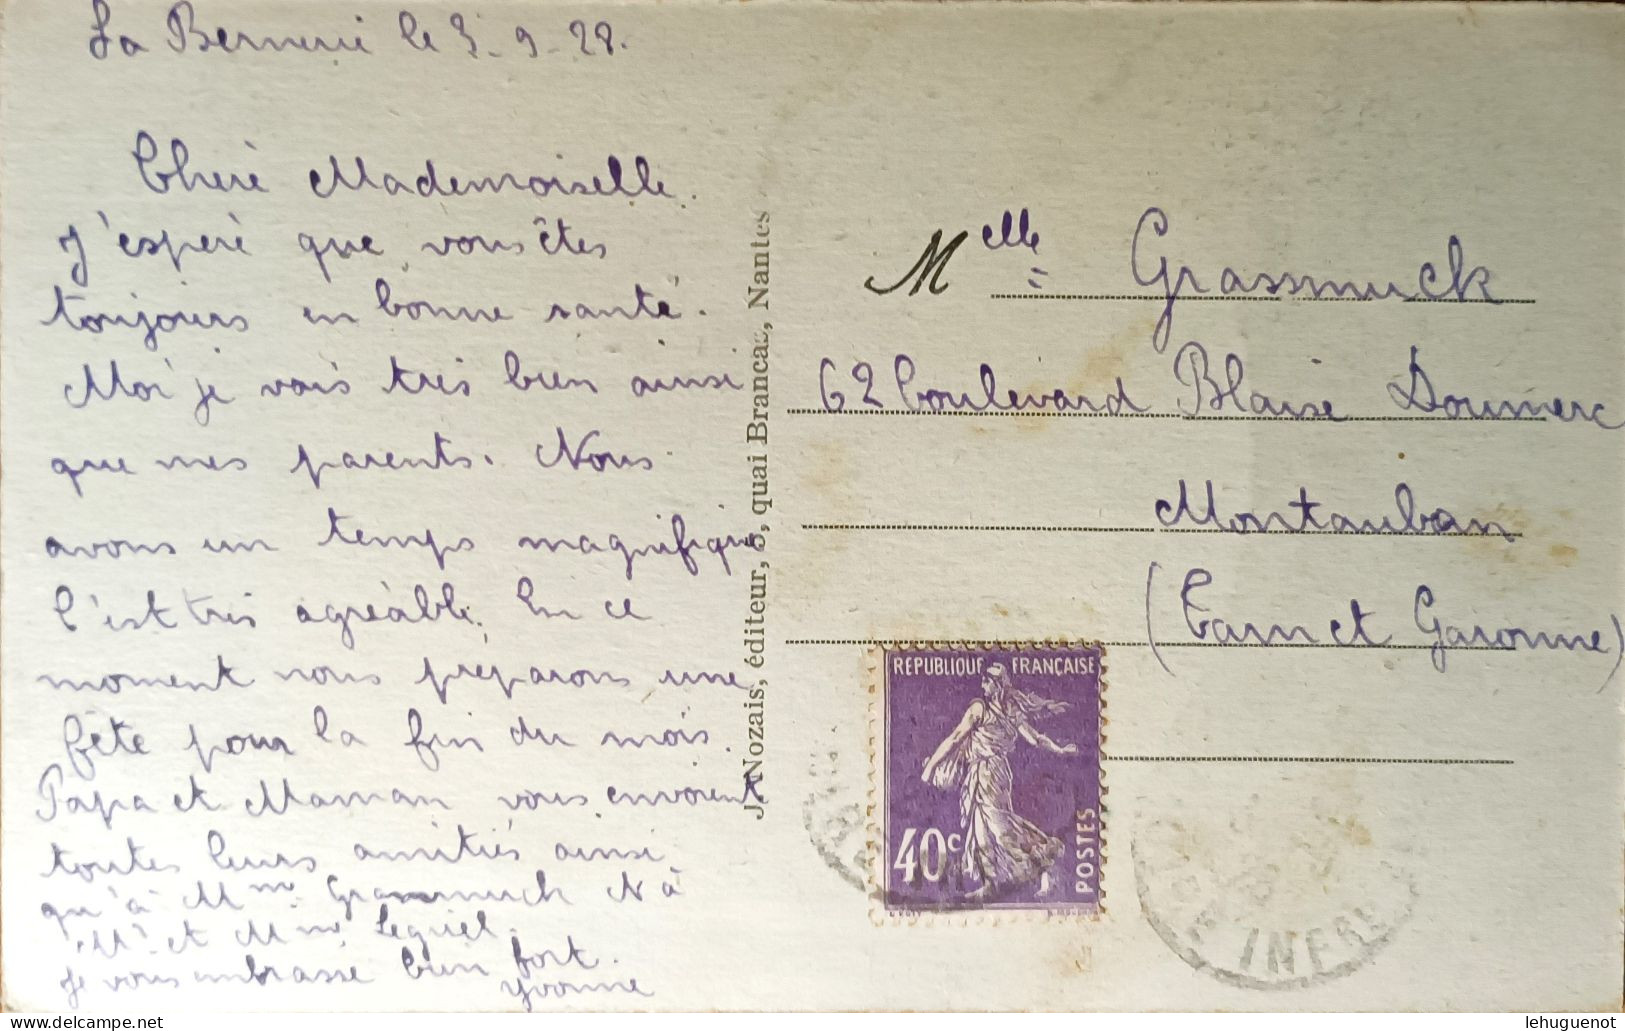 La Bernerie le 3-9-28.
Chère Mademoiselle.
J'espère que vous êtes
toujours en bonne santé.
Moi je vais très bien ainsi
que mes parents. Nous
avons un temps magnifique
C'est très agréable. En ce
moment nous préparons une
fête pour la fin du mois.
Papa et Maman vous envoient
toutes leurs amitiés ainsi
qu'à Mme Grassmuck N à
Mr et Mme Lequel.
Je vous embrasse bien fort.
Yvonne
J. Nozais, éditeur, 3, quai Brancas, Nantes
Melle Grassmuck
62 boulevard Blaise Doumerc
Montauban
(Tarn et Garonne)
RÉPUBLIQUE FRANÇAISE
40c
POSTES
INFRE
lehuguenot